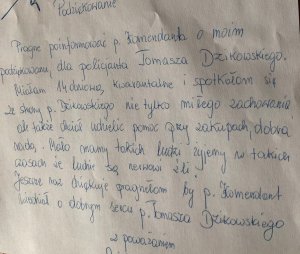 Podziękowanie
Pragnę poinformować p. Komendanta o moim
podziękowaniu, dla policjanta Tomasza Dzikowskiego.
Miałam kwarantannę i spotkałam się
ze strony p. Dzikowskiego nie tylko miłego zachowania
ale także chęć udzielić pomoc przy zakupach, dobrą
radą. Mało mamy takich ludzi żyjemy w takich
czasach że ludzie są nerwowi źli.
Jeszcze raz dziękuję pragnęłam by p. Komendant
wiedział o dobrym sercu p. Tomasza Dzikowskiego
z poważaniem